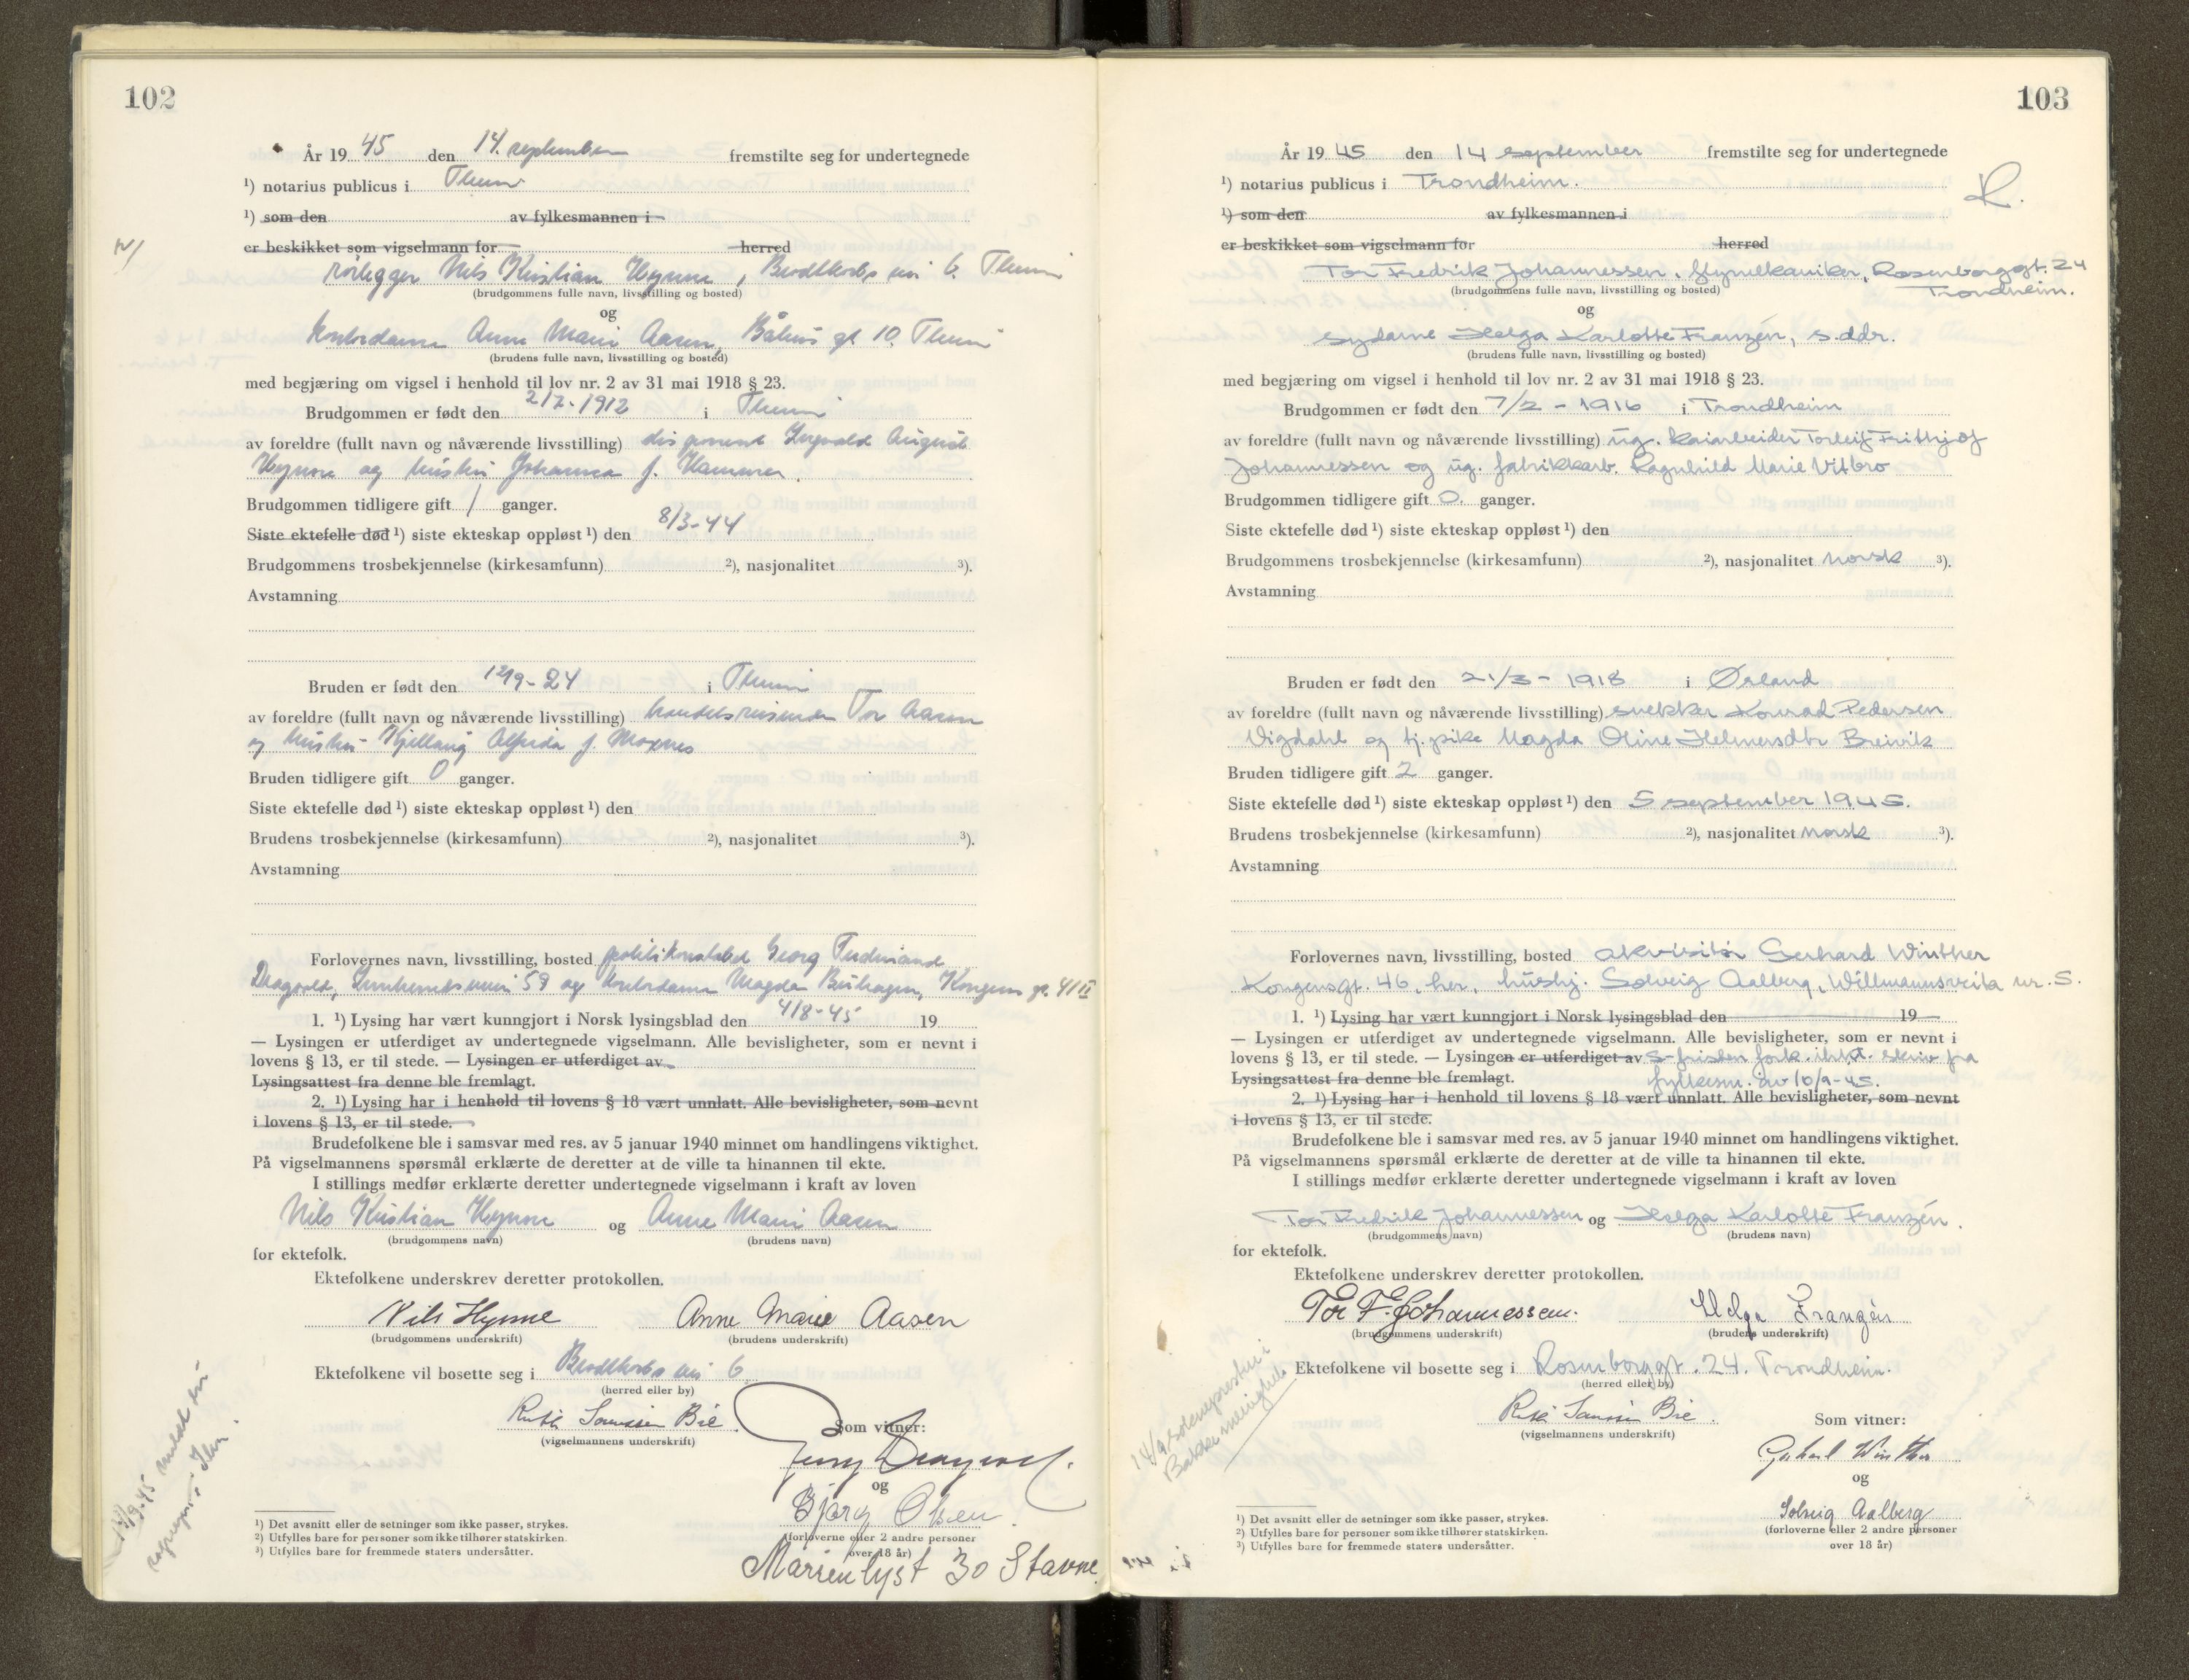 102
År 19 45 den 14. september fremstilte seg for undertegnede
¹) notarius publicus i Thrm
¹) som den av fylkesmannen i
er beskikket som vigselmann for herred
rørlegger Nils Kristian Hynne, Brodtkorbs vei 6. Thrm
(brudgommens fulle navn, livsstilling og bosted)
og
kontordame Anne Marie Aasen, Båhus gt 10, Thrm
(brudens fulle navn, livsstilling og bosted)
med begjæring om vigsel i henhold til lov nr. 2 av 31 mai 1918 § 23.
Brudgommen er født den 2/2-1912 i Thrm
av foreldre (fullt navn og nåværende livsstilling) disponent Ingvald August
Hynne og hustru Johanna f. Hammer.
Brudgommen tidligere gift 1 ganger.
Siste ektefelle død ¹) siste ekteskap oppløst ¹) den 8/3-44
Brudgommens trosbekjennelse (kirkesamfunn) ²), nasjonalitet ³).
Avstamning
Bruden er født den 12/9-24 i Thrm
av foreldre (fullt navn og nåværende livsstilling) handelsreisende Tor Aasen
og hustru Kjellaug Alfrida f. Moxnes
Bruden tidligere gift 0 ganger.
Siste ektefelle død ¹) siste ekteskap oppløst ¹) den
Brudens trosbekjennelse (kirkesamfunn) ²), nasjonalitet ³).
Avstamning
Forlovernes navn, livsstilling, bosted politikonstabel Georg Ferdinand
Dragvold, 59 og kontordame Magda Kongens gt. 41 II
1. ¹) Lysing har vært kunngjort i Norsk lysingsblad den 4/8-45 19
— Lysingen er utferdiget av undertegnede vigselmann. Alle bevisligheter, som er nevnt i
lovens § 13, er til stede. — Lysingen er utferdiget av
Lysingsattest fra denne ble fremlagt.
2. ¹) Lysing har i henhold til lovens § 18 vært unnlatt. Alle bevisligheter, som nevnt
i lovens § 13, er til stede.
Brudefolkene ble i samsvar med res. av 5 januar 1940 minnet om handlingens viktighet.
På vigselmannens spørsmål erklærte de deretter at de ville ta hinannen til ekte.
I stillings medfør erklærte deretter undertegnede vigselmann i kraft av loven
Nils Kristian Hynne og Anne Marie Aasen
(brudgommens navn) (brudens navn)
for ektefolk.
Ektefolkene underskrev deretter protokollen.
Nils Hynne Anne Marie Aasen
(brudgommens underskrift) (brudens underskrift)
Ektefolkene vil bosette seg i Brodtkorbs vei 6
(herred eller by)
Bie
(vigselmannens underskrift)
Som vitner:
Georg Dragvold.
og
Bjørg Olsen
(forloverne eller 2 andre personer
over 18 år)
Marienlyst 30 Stavne
¹) Det avsnitt eller de setninger som ikke passer, strykes.
²) Utfylles bare for personer som ikke tilhører statskirken.
³) Utfylles bare for fremmede staters undersåtter.
103
År 19 45 den 14 september fremstilte seg for undertegnede
¹) notarius publicus i Trondheim. R.
¹) som den av fylkesmannen i
er beskikket som vigselmann for herred
Tor Fredrik Johannessen, flymekaniker, Rosenborggt. 24
Trondheim.
(brudgommens fulle navn, livsstilling og bosted)
og
sydame Helga Karlotte Franzén, s.ddr.
(brudens fulle navn, livsstilling og bosted)
med begjæring om vigsel i henhold til lov nr. 2 av 31 mai 1918 § 23.
Brudgommen er født den 7/2 - 1916 i Trondheim
av foreldre (fullt navn og nåværende livsstilling) ug. kaiarbeider Torleif Frithjof
Johannessen og ug. fabrikkarb. Ragnhild Marie Vitbro
Brudgommen tidligere gift 0. ganger.
Siste ektefelle død ¹) siste ekteskap oppløst ¹) den
Brudgommens trosbekjennelse (kirkesamfunn) ²), nasjonalitet norsk ³).
Avstamning
Bruden er født den 21/3 - 1918 i Ørland
av foreldre (fullt navn og nåværende livsstilling) snekker Konrad Pedersen
Vigdahl og tj.pike Magda Oline Helmersdtr Breivik
Bruden tidligere gift 2 ganger.
Siste ektefelle død ¹) siste ekteskap oppløst ¹) den 5 september 1945.
Brudens trosbekjennelse (kirkesamfunn) ²), nasjonalitet norsk ³).
Avstamning
Forlovernes navn, livsstilling, bosted akvisitør Gerhard Winther
Kongensgt. 46, her, hushj. Solveig Aalberg, Willmannsveita nr. 5.
1. ¹) Lysing har vært kunngjort i Norsk lysingsblad den 19
— Lysingen er utferdiget av undertegnede vigselmann. Alle bevisligheter, som er nevnt i
lovens § 13, er til stede. — Lysingen er utferdiget av S-fristen fork. ihht. skriv fra
Lysingsattest fra denne ble fremlagt. fylkesm. av 10/9-45.
2. ¹) Lysing har i henhold til lovens § 18 vært unnlatt. Alle bevisligheter, som nevnt
i lovens § 13, er til stede.
Brudefolkene ble i samsvar med res. av 5 januar 1940 minnet om handlingens viktighet.
På vigselmannens spørsmål erklærte de deretter at de ville ta hinannen til ekte.
I stillings medfør erklærte deretter undertegnede vigselmann i kraft av loven
Tor Fredrik Johannessen og Helga Karlotte Franzén.
(brudgommens navn) (brudens navn)
for ektefolk.
Ektefolkene underskrev deretter protokollen.
Tor F. Johannessen. Helga Franzén
(brudgommens underskrift) (brudens underskrift)
Ektefolkene vil bosette seg i Rosenborggt. 24. Trondheim.
(herred eller by)
Bie.
(vigselmannens underskrift)
Som vitner:
Gerhard Winther
og
Solveig Aalberg
(forloverne eller 2 andre personer
over 18 år)
14/9 sokneprest i
Bakke menighet
¹) Det avsnitt eller de setninger som ikke passer, strykes.
²) Utfylles bare for personer som ikke tilhører statskirken.
³) Utfylles bare for fremmede staters undersåtter.